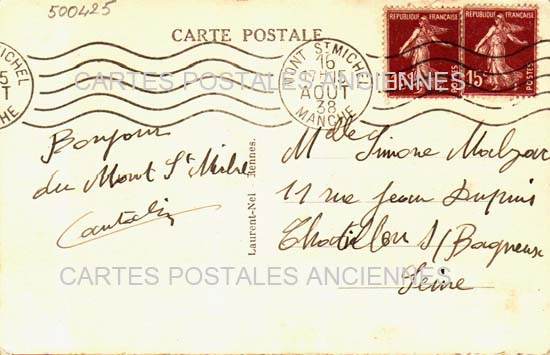 500425
CARTE POSTALE
REPUBLIQUE FRANÇAISE
REPUBLIQUE FRANÇAISE
15c
POSTES
POSTES
MONT ST MICHEL
16
AOUT
38
MANCHE
CARTES POSTALES ANCIENNES
Bonjour
du Mont St Michel
Laurent-Nel - Rennes.
Mdlle Simone
11 rue Jean Dupuis
Chatillon S/ Bagneux
Seine
CARTES POSTALES ANCIENNES